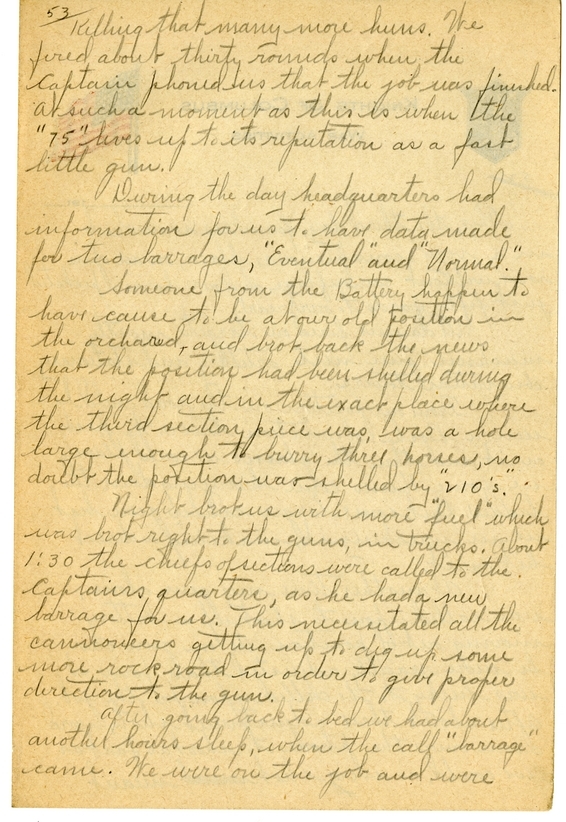 53
Killing that many more huns. We
fired about thirty rounds when the
Captain phoned us that the job was finished.
At such a moment as this is when the
"75" lives up to its reputation as a fast
little gun.
During the day headquarters had
information for us to have data made
for two barrages, "Eventual" and "Normal."
Someone from the Battery happen to
have cause to be at our old position in
the orchared, and brot back the news
that the position had been shelled during
the night and in the exact place where
the third section piece was, was a hole
large enough to burry three horses, no
doubt the position was shelled by "210's."
Night brot us with more "fuel" which
was brot right to the guns, in trucks. About
1:30 the chiefs of sections were called to the
Captains quarters, as he had a new
barrage for us. This necessitated all the
cannoneers getting up to dig up some
more rock road in order to give proper
direction to the gun.
After going back to bed we had about
another hours sleep, when the call "barrage"
came. We were on the job and were